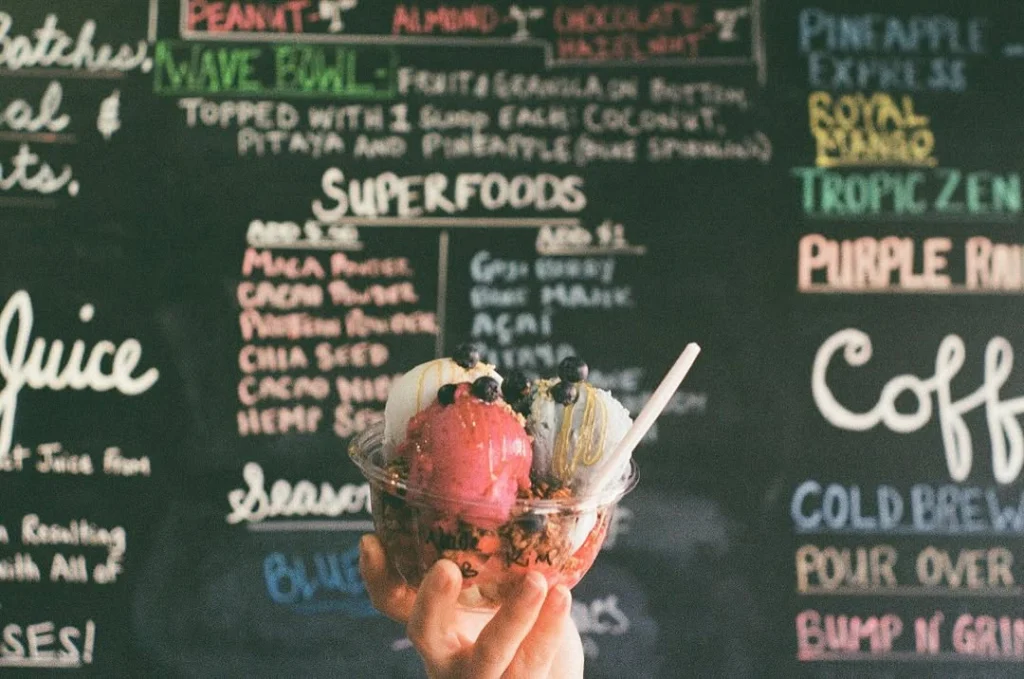 Batches.
al &
ts.
Juice
Juice From
Resulting
with All of
SES!
PEANUT- ALMOND- CHOCOLATE
HAZELNUT-
WAVE BOWL- FRUIT & GRANOLA ON BOTTOM,
TOPPED WITH 1 SCOOP EACH: COCONUT,
PITAYA AND PINEAPPLE (BLUE SPIRULINA)
SUPERFOODS
ADD
MACA POWDER
CACAO POWDER
PROTEIN POWDER
CHIA SEED
CACAO NIB
HEMP SEE
ADD $1
GOJI BERRY
AÇAÍ
PITAYA
Season
BLUE
PINEAPPLE
EXPRESS
ROYAL
MANGO
TROPIC ZEN
PURPLE RAI
Coff
COLD BREW
POUR OVER
BUMP N' GRIN